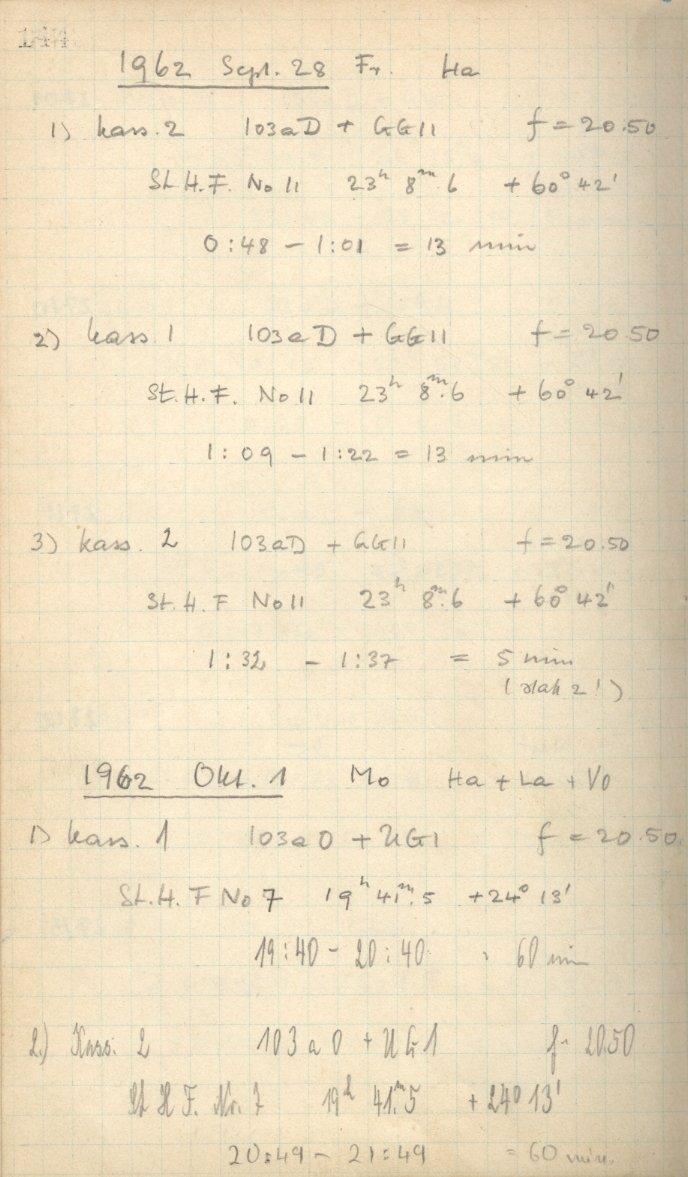 1962 Sept. 28 Fr. Ha
1) kass. 2 103aD + GG11 f = 20.50
St. H. F. No 11 23ʰ 8ᵐ.6 + 60° 42'
0:48 – 1:01 = 13 min
2) kass. 1 103aD + GG11 f = 20.50
St. H. F. No 11 23ʰ 8ᵐ.6 + 60° 42'
1:09 – 1:22 = 13 min
3) kass. 2 103aD + GG11 f = 20.50
St. H. F No 11 23ʰ 8ᵐ.6 + 60° 42'
1:32 – 1:37 = 5 min
2!)
1962 Okt. 1 Mo Ha + La + Vo
1) kass. 1 103aO + UG1 f = 20.50
St. H. F No 7 19ʰ 41ᵐ.5 + 24° 13'
19:40 – 20:40 = 60 min
2.) Kass. 2 103aO + UG1 f = 20.50
St H F. Nr. 7 19ʰ 41ᵐ.5 + 24° 13'
20:49 – 21:49 = 60 min.